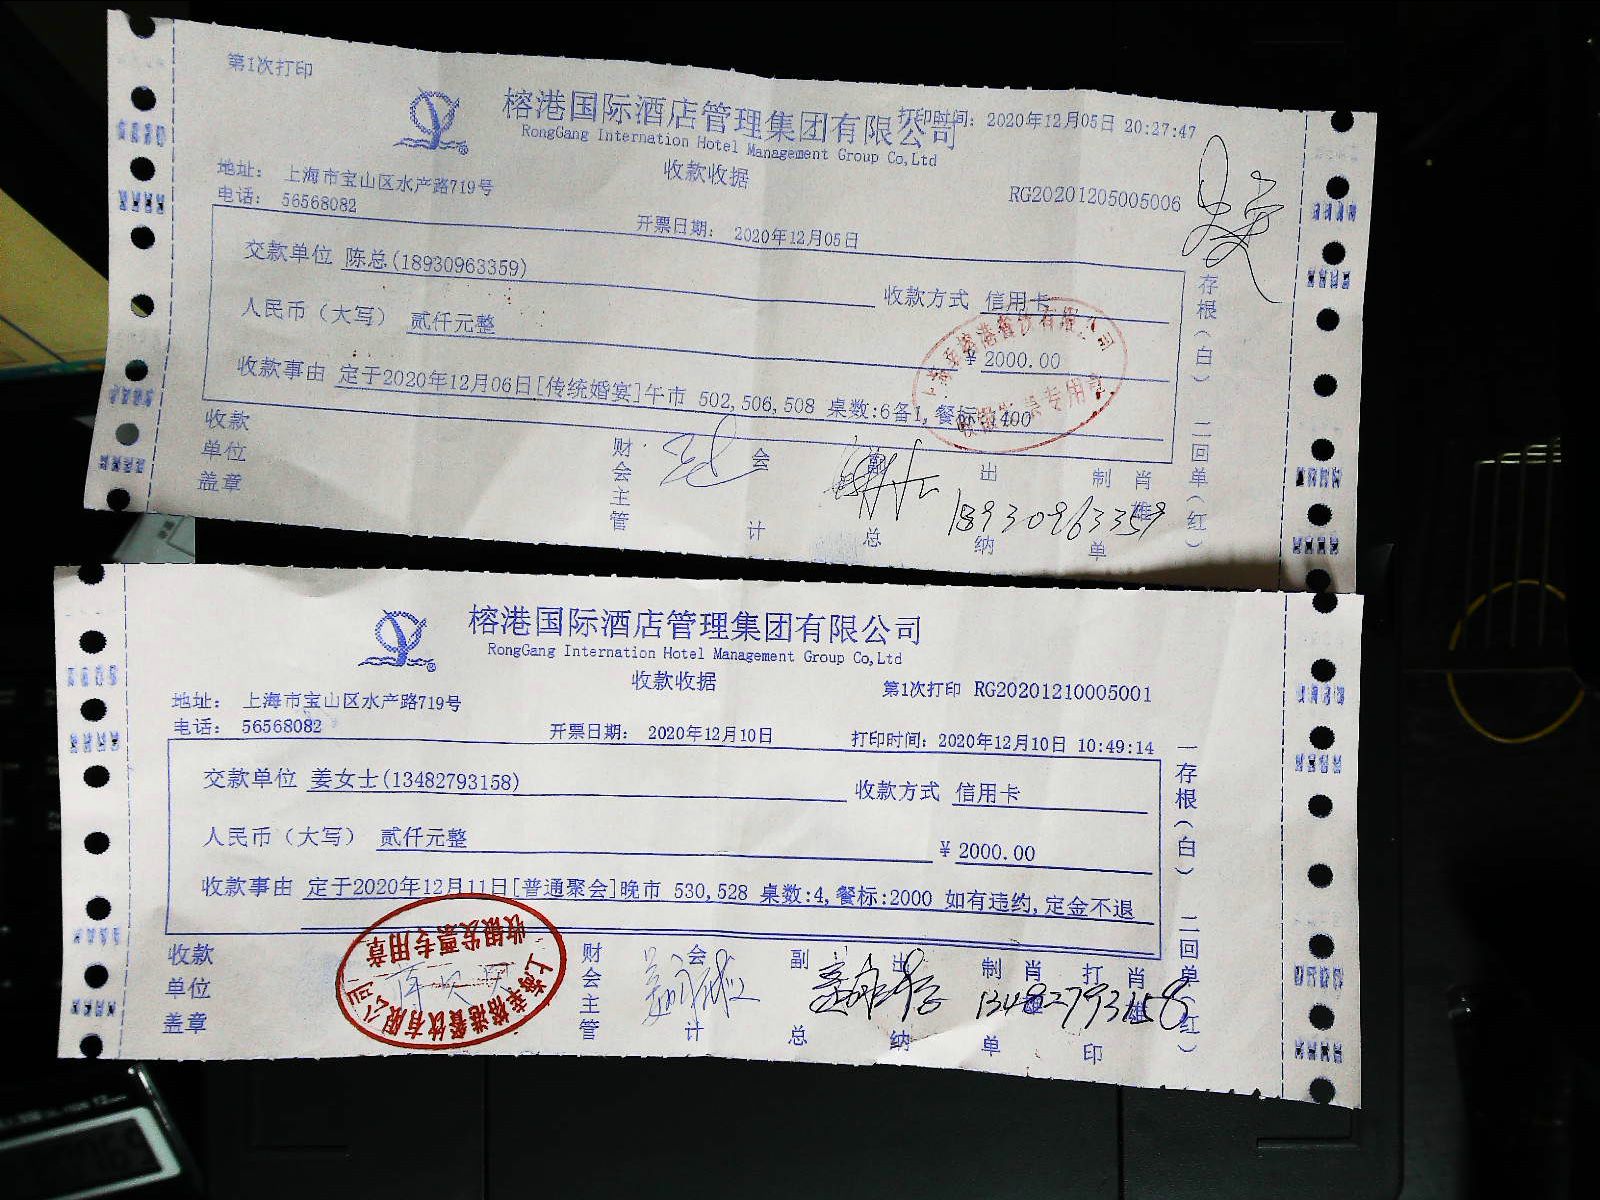 第1次打印
榕港国际酒店管理集团有限公司 打印时间: 2020年12月05日 20:27:47
RongGang Internation Hotel Management Group Co,Ltd
收款收据
地址: 上海市宝山区水产路719号
RG20201205005006
电话: 56568082
开票日期: 2020年12月05日
交款单位 陈总(18930963359) 收款方式 信用卡
人民币（大写） 贰仟元整 ¥ 2000.00
收款事由 定于2020年12月06日[传统婚宴]午市 502,506,508 桌数:6备1,餐标:1400
收款单位盖章
财会主管 会计 副总 出纳 制单 肖雄
18930963359
存根（白） 二回单（红）
榕港国际酒店管理集团有限公司
RongGang Internation Hotel Management Group Co,Ltd
收款收据
第1次打印 RG20201210005001
地址: 上海市宝山区水产路719号
电话: 56568082
开票日期: 2020年12月10日 打印时间: 2020年12月10日 10:49:14
交款单位 姜女士(13482793158) 收款方式 信用卡
人民币（大写） 贰仟元整 ¥ 2000.00
收款事由 定于2020年12月11日[普通聚会]晚市 530,528 桌数:4,餐标:2000 如有违约,定金不退
收款单位盖章
财会主管 会计 副总 出纳 制单 肖 打印 肖
13482793158
一存根（白） 二回单（红）
收银发票专用章